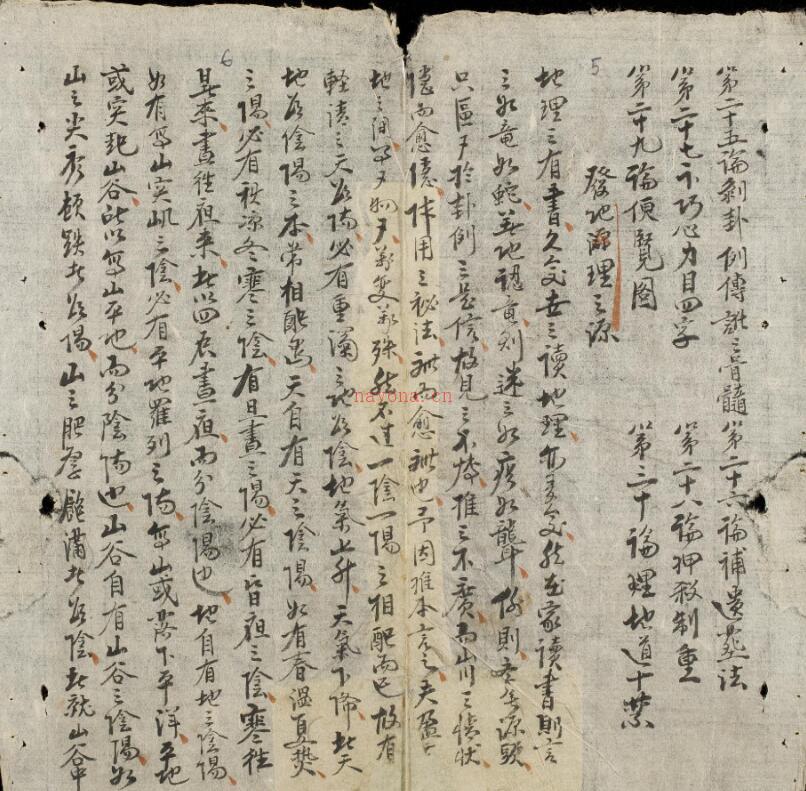 第二十五論剝卦例傳訛之骨髓 第二十六論補遺葬法
第二十七卜巧心力目四字 第二十八論押殺制重
第二十九論便覽圖 第三十論理地道十禁
5
發地源理之源
地理之有書久矣世之讀地理亦多矣然在家讀書則言
之如竜如蛇若地認真則迷之如瘂如聾 則 源頭
只區々於卦例之是信故見之不 推之不廣而山川之情狀
隱而愈隱作用之秘法 而愈 也予因推本言之夫盈
地之間 夕 夕 雙 殊然不过一陰一陽之相配而已故有
軽清之天為陽必有重濁之地為陰地氣上升天氣下降此天
地為陰陽之本常相配也天自有天之陰陽如有春温夏热
之陽必有秋凉冬寒之陰有旦晝之陽必有皆夜之陰寒往
6
暑来晝往夜来此以四辰晝夜而分陰陽也地自有地之陰陽
如有高山突屼之陰必有平地羅列之陽高山或落下平洋平地
或突起山谷此以高山平地而分陰陽也山谷自有山谷之陰陽如
山之尖 頓跌者為陽山之肥厚飽滿者為陰此就山谷中
nayona.cn